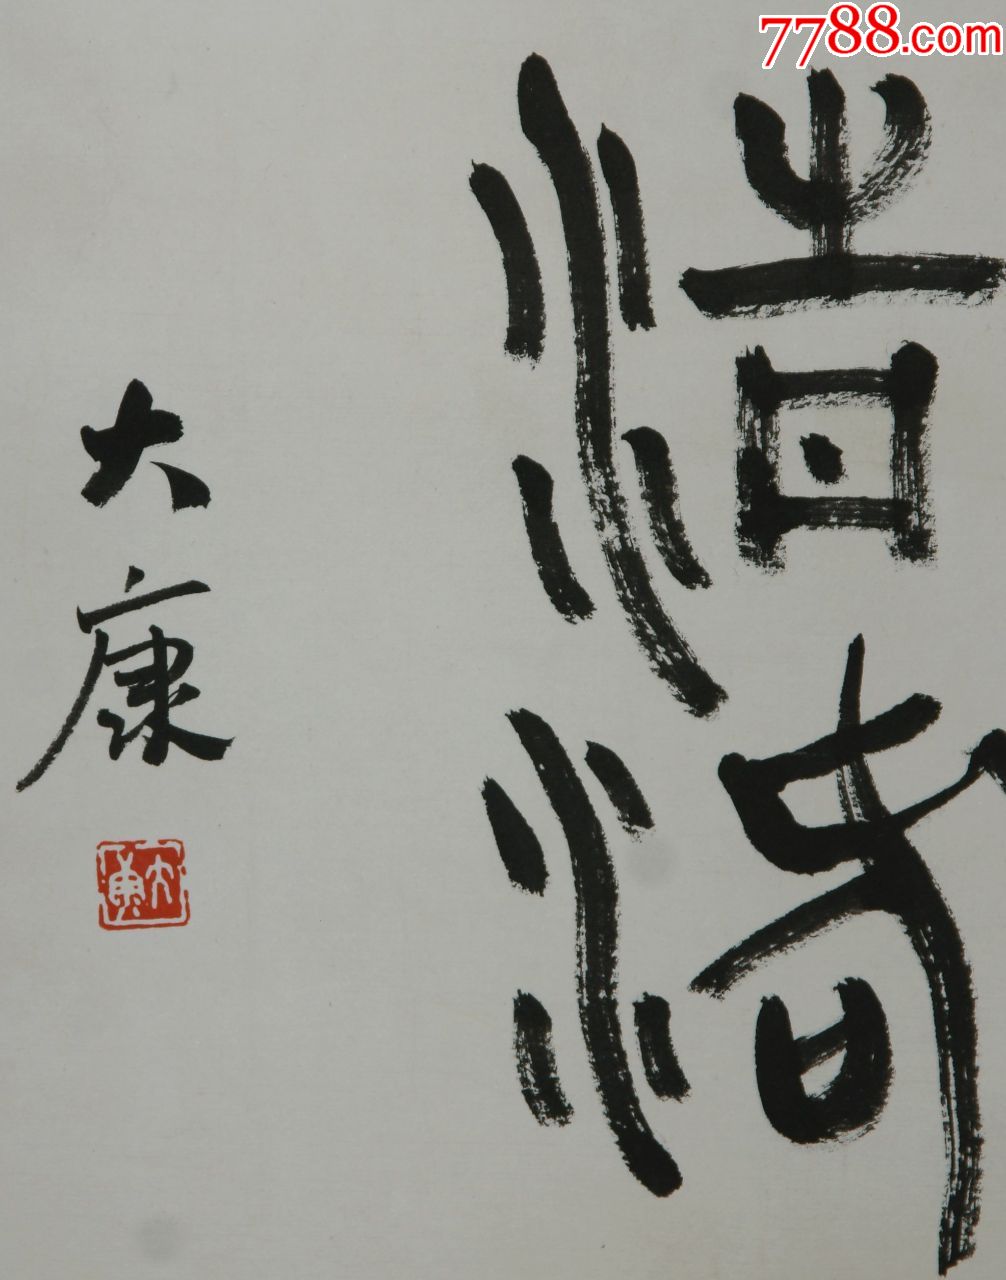 7788.com
清漪
大康
大康